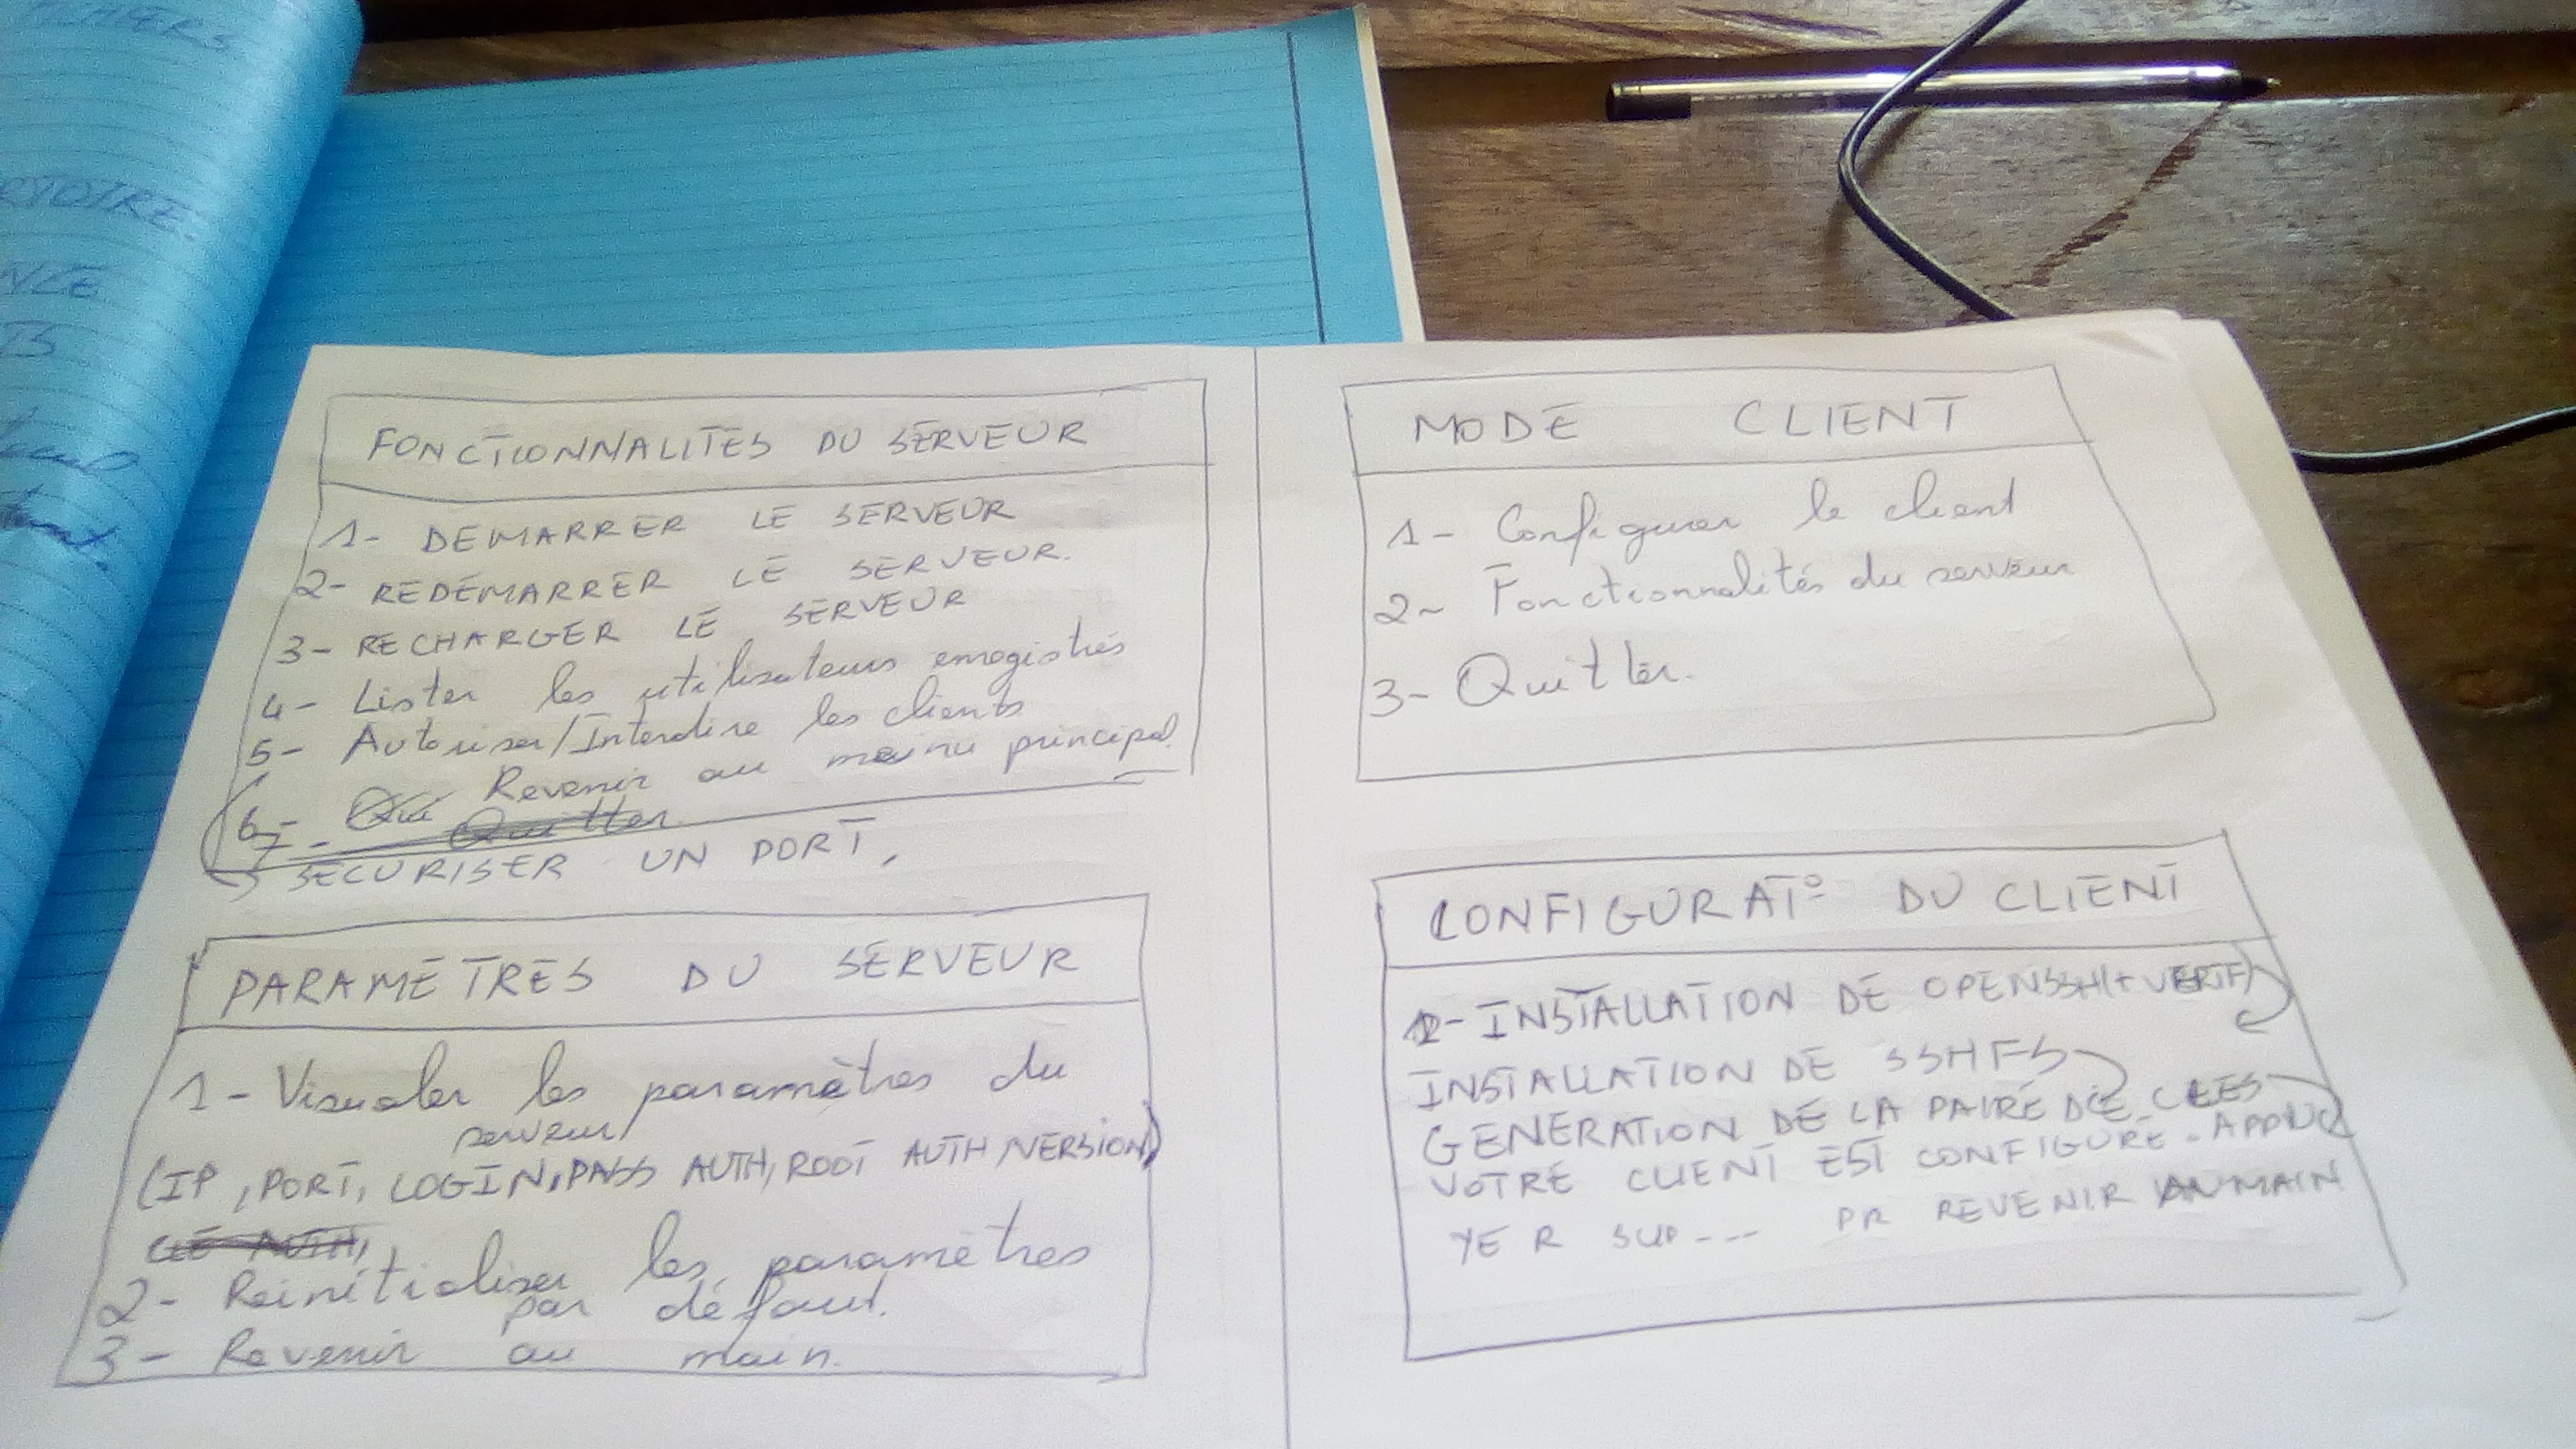 FONCTIONNALITES DU SERVEUR
1- DEMARRER LE SERVEUR
2- REDEMARRER LE SERVEUR.
3- RECHARGER LE SERVEUR
4- Lister les utilisateurs enregistrés
5- Autoriser/Interdire les clients
6- Revenir au menu principal.
7- Quitter
SECURISER UN PORT,
PARAMETRES DU SERVEUR
1- Visualer les paramètres du
serveur
(IP, PORT, LOGIN, PASS AUTH, ROOT AUTH, VERSION)
CLE AUTH,
2- Reinitialiser les paramètres
par défaut.
3- Revenir au main.
MODE CLIENT
1- Configurer le client
2- Fonctionnalités du serveur
3- Quitter.
CONFIGURAT° DU CLIENT
1- INSTALLATION DE OPENSSH(+ VERIF)
INSTALLATION DE SSHFS
GENERATION DE LA PAIRE DE CLES
VOTRE CLIENT EST CONFIGURE. APPUY
YER SUR --- PR REVENIR AU MAIN
RTOIRE.